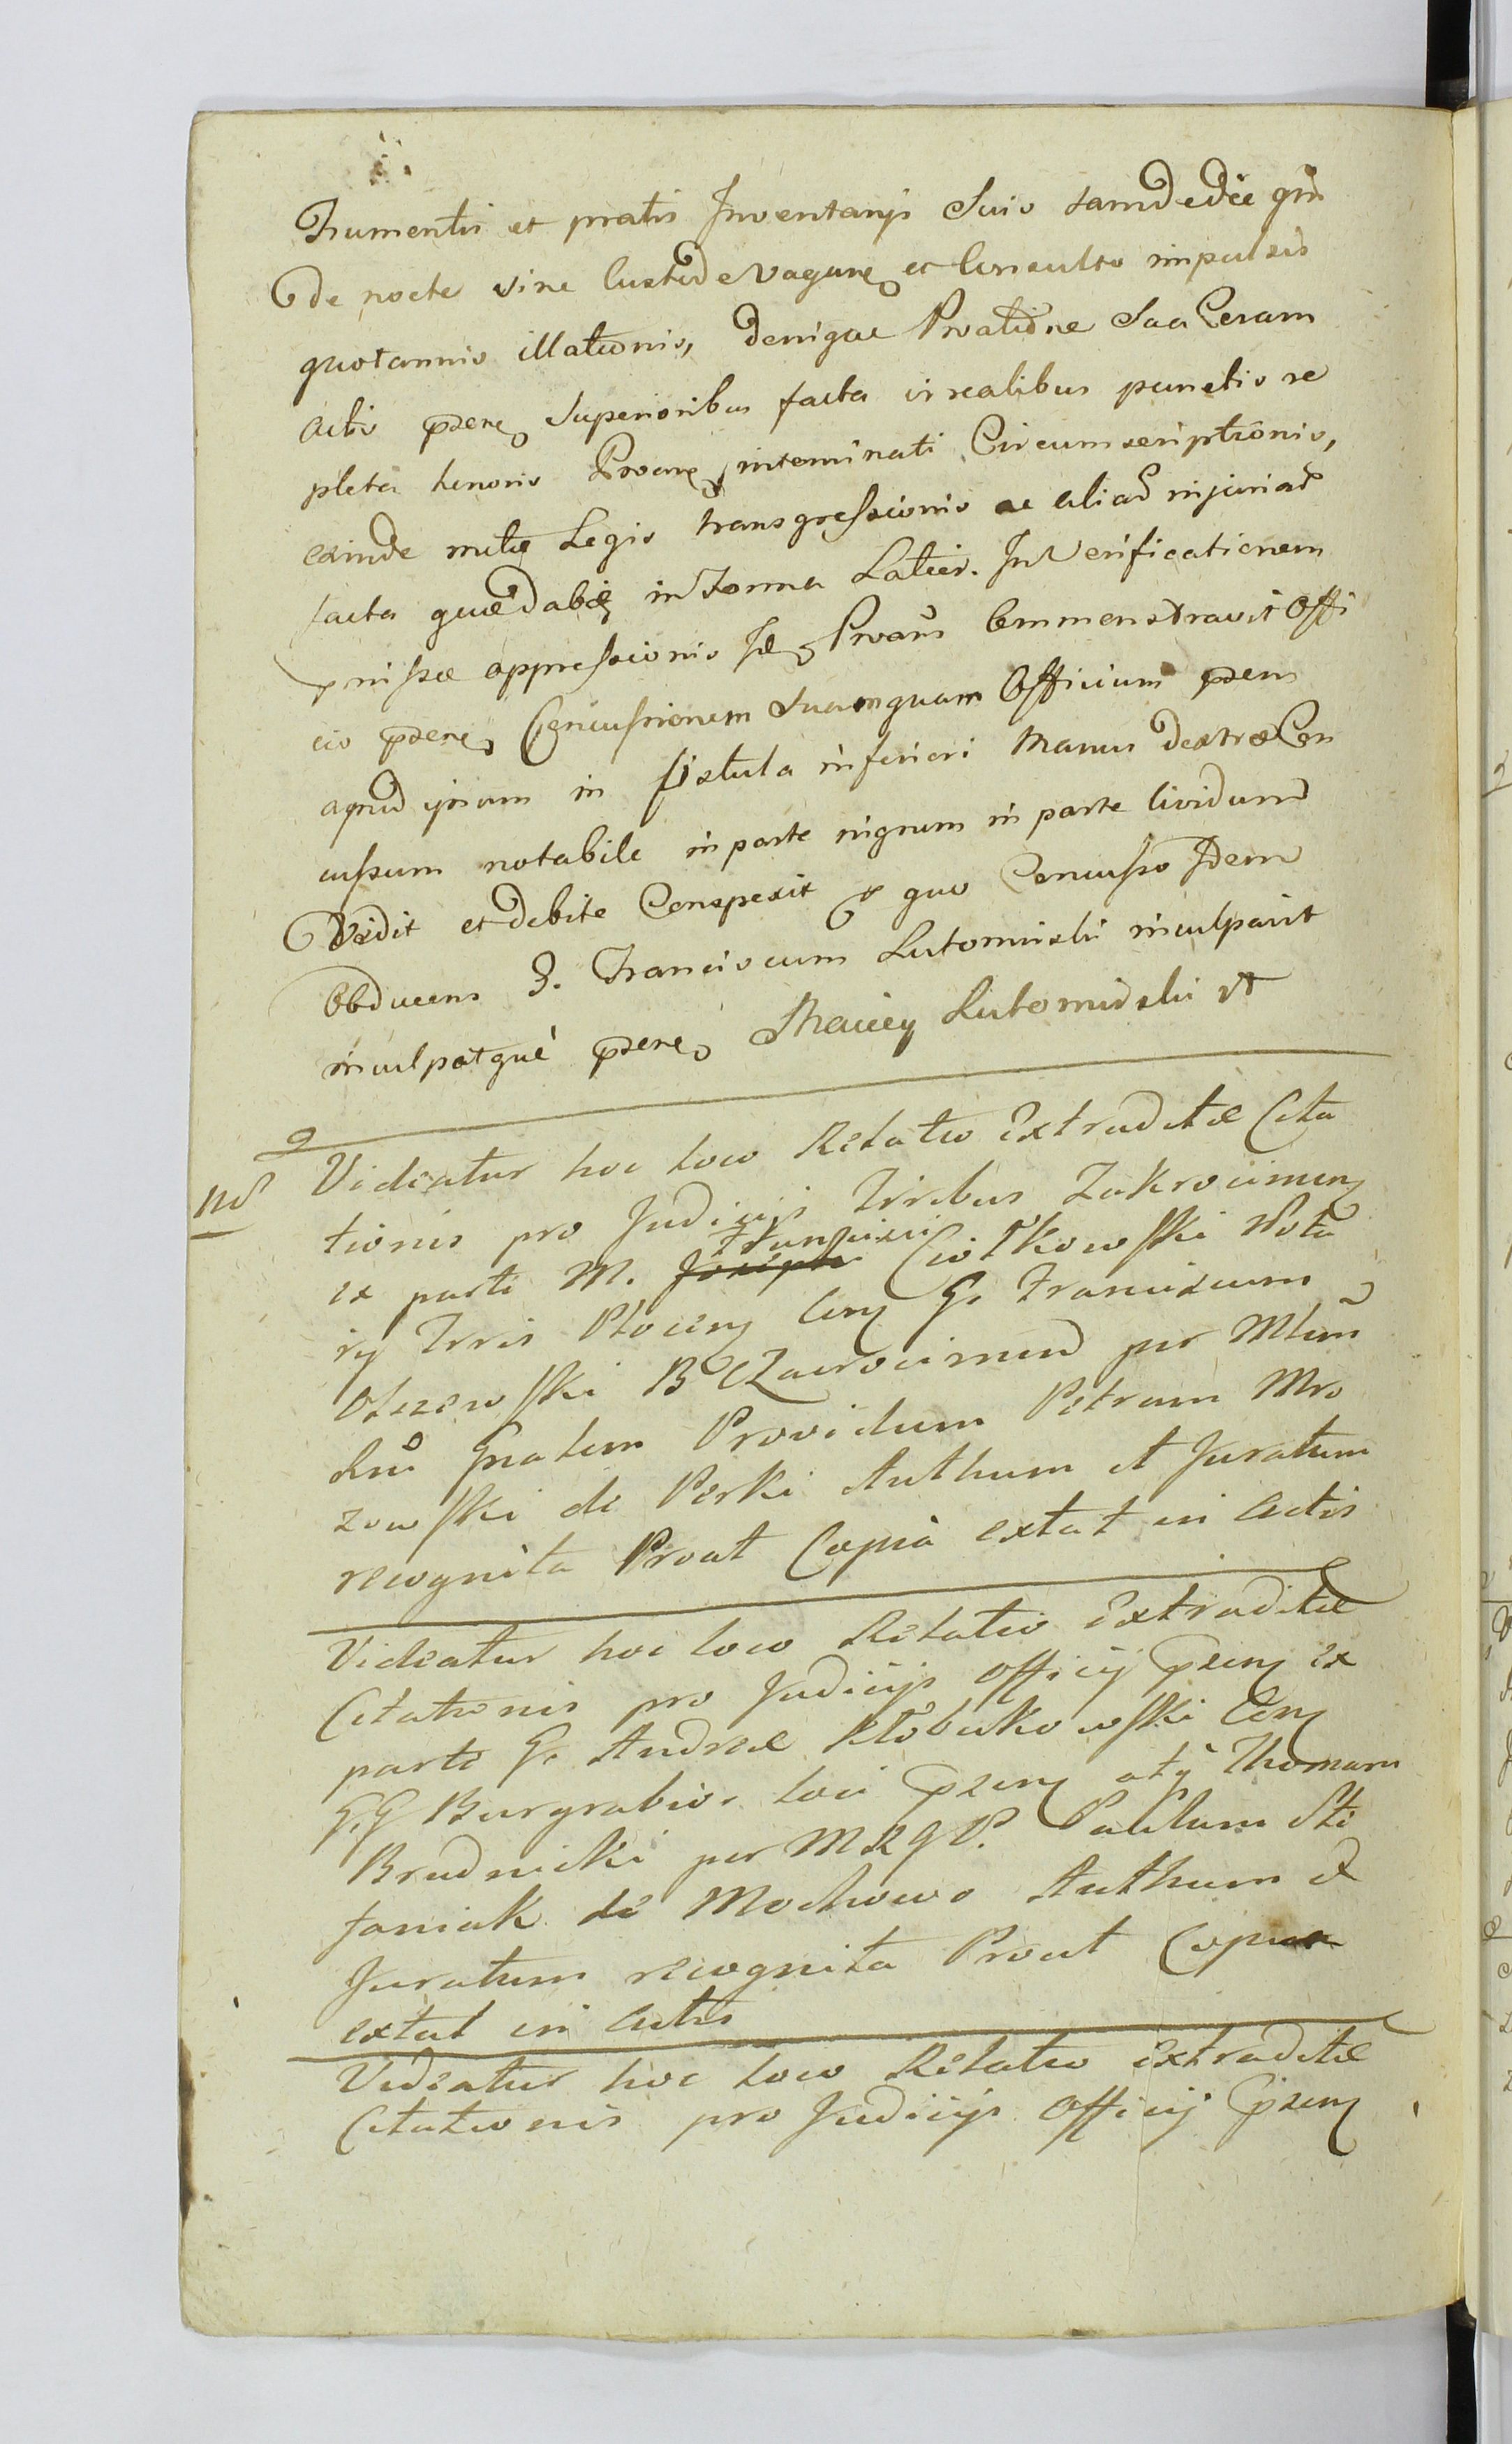 Frumentis et pratis Inventarys Suis tam de die qm
de nocte sine Custode vagare et Consulto impulsis
quotannis illationis, denique Protione Sua Coram
Actis pnere superioribus facta in realibus punctis re
pleta tenoris Proane interminati Circumscriptionis,
exinde mulctæ Legis transgressionis ac aliad injuriad
facta quæ dabit in Forma Latier. In Verificationem
præmissæ oppressionis Id Proans Commenstravit Offi
cio pnere Concussionem Suam quam Officium pnens
apud ipsum in fistula inferiori Manus dextræ Con
cussum notabile in parte nigrum in parte lividum
Vidit et debite Conspexit pro quo Concusso Idem
Obducens G. Franciscum Lutomirski inculpavit
inculpatque pnere Maciey Lutomirski st
Nd Videatur hoc loco Relatio Extraditæ Cita
tionis pro Judicijs Trribus Zakrocimien
ex parte M. Josephi Francisci Ciołkowski Nota
rij Trris Plocen Con G. Franciscum
Olszewski B Zacrocimen per Mlum
Rni Gnalem Providum Petrum Mro
zowski de Perki Authum et Juratum
recognita Prout Copia extat in Actis
Videatur hoc loco Relatio Extraditæ
Citationis pro Judicijs Officij pnen ex
parte G. Andreæ Kłobukowski Con
G.G Burgrabios loci pnen aty Thomam
Brudnicki per MRGP. Paulum Ste
faniak de Mochowo Authum et
Juratum recognita Prout Copia
extat in Actis
Videatur hoc loco Relatio Extraditæ
Citationis pro Judicijs Officij pnen